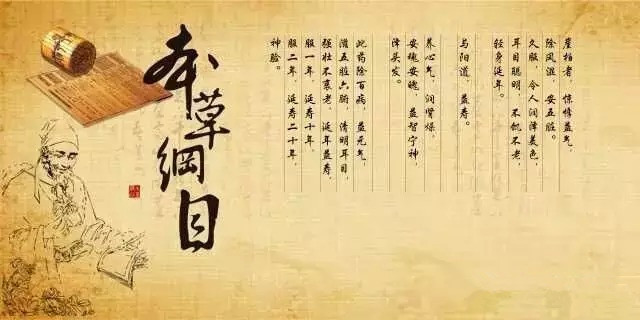 崖柏者，惊悸益气，
除风湿，安五脏。
久服，令人润泽美色，
耳目聪明，不饥不老，
轻身延年。
与阳道，益寿。
养心气，润肾燥，
安魂安魄，益智宁神，
泽头发。
此药除百病，益元气，
滋五脏六腑，清明耳目，
强壮不衰老，延年益寿，
服一年，延寿十年，
服二年，延寿二十年，
神验。
本草綱目